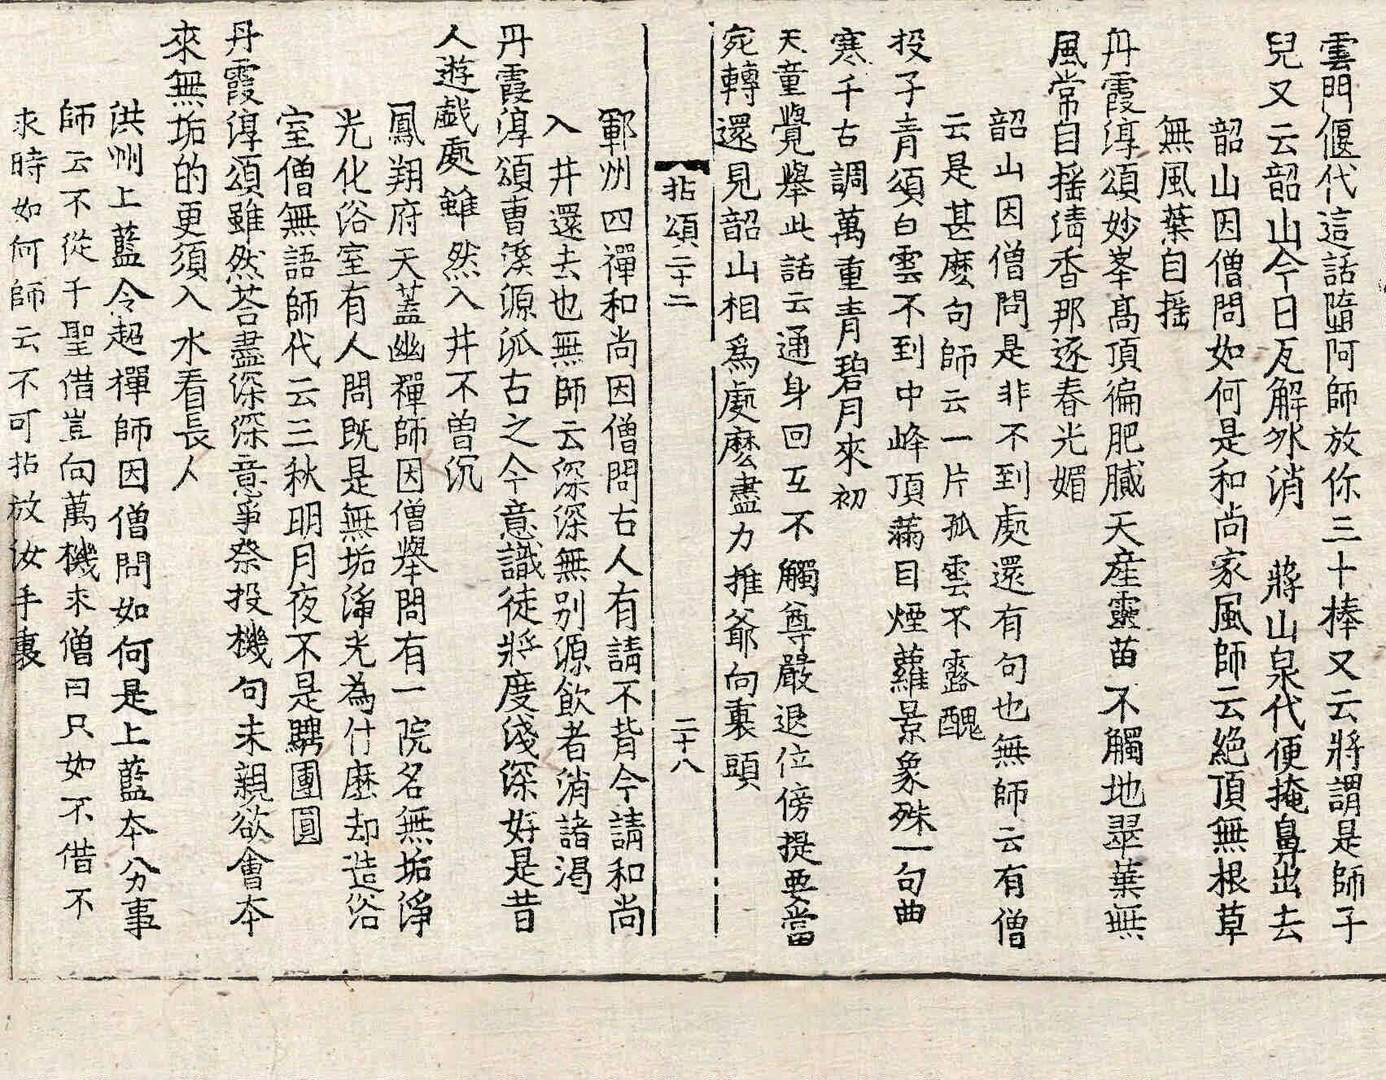 雲門偃代這話隨阿師放你三十棒又云將謂是師子
兒又云韶山今日瓦解冰消 蔣山泉代便掩鼻出去
韶山因僧問如何是和尚家風師云絶頂無根草
無風葉自搖
丹霞淳頌妙峯髙頂徧肥膩天産靈苗不觸地翠葉無
風常自搖清香那逐春光媚
韶山因僧問是非不到處還有句也無師云有僧
云是甚麽句師云一片孤雲不露醜
投子青頌白雲不到中峰頂滿目煙蘿景象殊一句曲
寒千古調萬重青碧月來初
天童覺舉此話云通身回互不觸尊嚴退位傍提要當
宛轉還見韶山相爲處麽盡力推爺向裏頭
拈頌二十二
二十八
鄆州四禪和尚因僧問古人有請不背今請和尚
入井還去也無師云深深無别源飲者消諸渴
丹霞淳頌曹溪源派古之今意識徒將度淺深好是昔
人遊戱處雖然入井不曾沉
鳳翔府天蓋幽禪師因僧舉問有一院名無垢淨
光化浴室有人問既是無垢淨光為什麽却造浴
室僧無語師代云三秋明月夜不是騁團圓
丹霞淳頌雖然荅盡深深意爭柰投機句未親欲會本
來無垢的更須入水看長人
洪州上藍令超禪師因僧問如何是上藍本分事
師云不從千聖借豈向萬機求僧曰只如不借不
求時如何師云不可拈放汝手裏